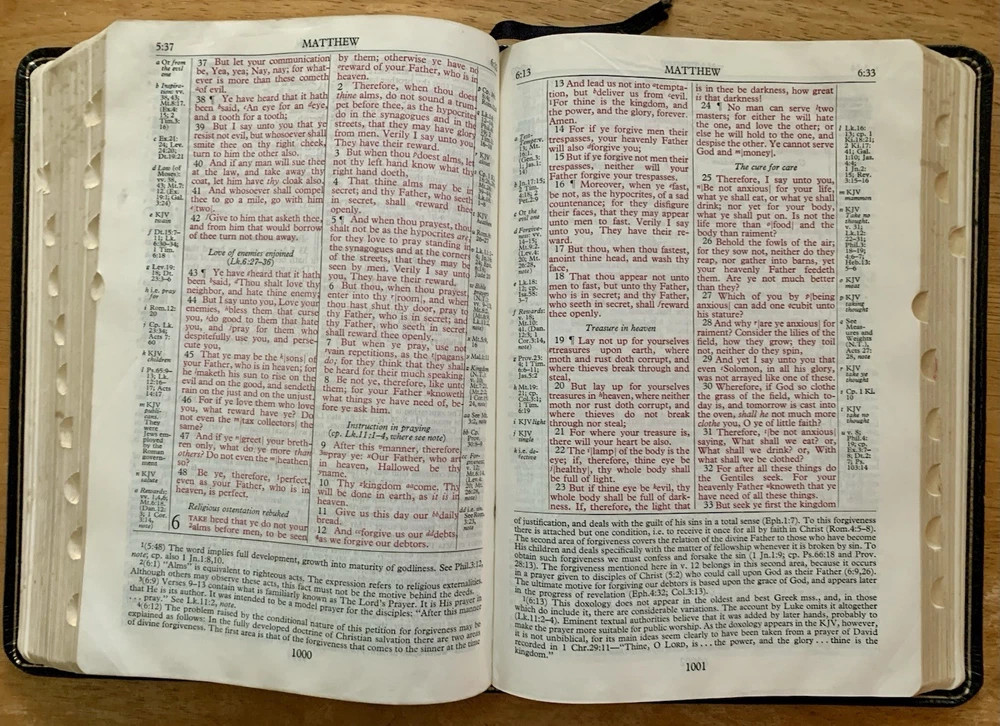 5:37
MATTHEW
a Or from
the evil
one
b Inspira-
tion:
vv.
38, 43;
Mt.8:17.
(Ex.4:
15; 2
Tim.3:
16)
c Ex.21:
24; Lev.
24:20;
Dt.19:21
d Law (of
Moses):
vv. 38,
43; Mt.7:
12. (Ex.
19:1;
Gal.
3:24)
e KJV
twain
f Dt.15:7–
11; Lk.
6:30–34;
1 Tim.
6:18
g Lev.19:
18; Dt.
23:3–6
h i.e. pray
for
i Rom.12:
20
j Cp. Lk.
23:34;
Acts 7:
60
k KJV
children
l Ps.65:9–
13; Lk.
12:16–
17; Acts
14:17
m KJV
publi-
cans.
They
were
Jews em-
ployed
by the
Roman
govern-
ment
n KJV
salute
o Rewards:
vv. 1,4,6;
Mt.6:18.
(Dan.12:
3; 1 Cor.
3:14,
note)
37 But let your communication
be, Yea, yea; Nay, nay; for what-
ever is more than these cometh
of evil.
38 ¶ Ye have heard that it hath
been said, An eye for an eye,
and a tooth for a tooth;
39 But I say unto you that ye
resist not evil, but whosoever shall
smite thee on thy right cheek,
turn to him the other also.
40 And if any man will sue thee
at the law, and take away thy
coat, let him have thy cloak also.
41 And whosoever shall compel
thee to go a mile, go with him
two.
42 Give to him that asketh thee,
and from him that would borrow
of thee turn not thou away.
Love of enemies enjoined
(Lk.6:27–36)
43 ¶ Ye have heard that it hath
been said, Thou shalt love thy
neighbor, and hate thine enemy.
44 But I say unto you, Love your
enemies, bless them that curse
you, do good to them that hate
you, and pray for them who
despitefully use you, and perse-
cute you,
45 That ye may be the [sons] of
your Father, who is in heaven; for
he maketh his sun to rise on the
evil and on the good, and sendeth
rain on the just and on the unjust.
46 For if ye love them who love
you, what reward have ye? Do
not even the [tax collectors] the
same?
47 And if ye [greet] your breth-
ren only, what do ye more than
others? Do not even the heathen
so?
48 Be ye, therefore, perfect,
even as your Father, who is in
heaven, is perfect.
Religious ostentation rebuked
6 TAKE heed that ye do not your
alms before men, to be seen
by them; otherwise ye have no
reward of your Father, who is in
heaven.
2 Therefore, when thou doest
thine alms, do not sound a trum-
pet before thee, as the hypocrites
do in the synagogues and in the
streets, that they may have glory
from men. Verily I say unto you,
They have their reward.
3 But when thou doest alms, let
not thy left hand know what thy
right hand doeth,
4 That thine alms may be in
secret; and thy Father, who seeth
in secret, shall reward thee
openly.
5 ¶ And when thou prayest, thou
shalt not be as the hypocrites are;
for they love to pray standing in
the synagogues and at the corners
of the streets, that they may be
seen by men. Verily I say unto
you, They have their reward.
6 But thou, when thou prayest,
enter into thy [room], and when
thou hast shut thy door, pray to
thy Father, who is in secret; and
thy Father, who seeth in secret,
shall reward thee openly.
7 But when ye pray, use not
vain repetitions, as the [pagans]
do; for they think that they shall
be heard for their much speaking.
8 Be not ye, therefore, like unto
them; for your Father knoweth
what things ye have need of, be-
fore ye ask him.
Instruction in praying
(cp. Lk.11:1–4, where see note)
9 After this manner, therefore,
pray ye: Our Father, who art
in heaven, Hallowed be thy
name.
10 Thy kingdom come, Thy
will be done in earth, as it is in
heaven.
11 Give us this day our daily
bread.
12 And forgive us our debts,
as we forgive our debtors.
1(5:48) The word implies full development, growth into maturity of godliness. See Phil.3:12,
note; cp. also 1 Jn.1:8,10.
2(6:1) “Alms” is equivalent to righteous acts. The expression refers to religious externalities.
Although others may observe these acts, this fact must not be the motive behind the deeds.
3(6:9) Verses 9–13 contain what is familiarly known as The Lord's Prayer. It is His prayer in
that He is its author. It was intended to be a model prayer for the disciples: “After this manner
. . . pray.” See Lk.11:2, note.
4(6:12) The problem raised by the conditional nature of this petition for forgiveness may be
explained as follows: In the fully developed doctrine of Christian salvation there are two areas
of divine forgiveness. The first area is that of the forgiveness that comes to the sinner at the time
1000
6:13
MATTHEW
6:33
13 And lead us not into temptation,
but deliver us from evil.
For thine is the kingdom, and
the power, and the glory, forever.
Amen.
14 For if ye forgive men their
trespasses, your heavenly Father
will also forgive you;
15 But if ye forgive not men their
trespasses, neither will your
Father forgive your trespasses.
16 ¶ Moreover, when ye fast,
be not, as the hypocrites, of a sad
countenance; for they disfigure
their faces, that they may appear
unto men to fast. Verily I say
unto you, They have their re-
ward.
17 But thou, when thou fastest,
anoint thine head, and wash thy
face,
18 That thou appear not unto
men to fast, but unto thy Father,
who is in secret; and thy Father,
who seeth in secret, shall reward
thee openly.
Treasure in heaven
19 ¶ Lay not up for yourselves
treasures upon earth, where
moth and rust doth corrupt, and
where thieves break through and
steal,
20 But lay up for yourselves
treasures in heaven, where neither
moth nor rust doth corrupt, and
where thieves do not break
through nor steal;
21 For where your treasure is,
there will your heart be also.
22 The [lamp] of the body is the
eye; if, therefore, thine eye be
[healthy], thy whole body shall
be full of light.
23 But if thine eye be evil, thy
whole body shall be full of dark-
ness. If, therefore, the light that
is in thee be darkness, how great
is that darkness!
24 ¶ No man can serve two
masters; for either he will hate
the one, and love the other; or
else he will hold to the one, and
despise the other. Ye cannot serve
God and [money].
The cure for care
25 Therefore, I say unto you,
[Be not anxious] for your life,
what ye shall eat, or what ye shall
drink; nor yet for your body,
what ye shall put on. Is not the
life more than [food] and the
body than raiment?
26 Behold the fowls of the air;
for they sow not, neither do they
reap, nor gather into barns, yet
your heavenly Father feedeth
them. Are ye not much better
than they?
27 Which of you by [being
anxious] can add one cubit unto
his stature?
28 And why [are ye anxious] for
raiment? Consider the lilies of the
field, how they grow; they toil
not, neither do they spin,
29 And yet I say unto you that
even Solomon, in all his glory,
was not arrayed like one of these.
30 Wherefore, if God so clothe
the grass of the field, which to-
day is, and tomorrow is cast into
the oven, shall he not much more
clothe you, O ye of little faith?
31 Therefore, [be not anxious]
saying, What shall we eat? or,
What shall we drink? or, With
what shall we be clothed?
32 For after all these things do
the Gentiles seek. For your
heavenly Father knoweth that ye
have need of all these things.
33 But seek ye first the kingdom
l Lk.16:
13; cp. 1
Ki.18:21;
2 Ki.17:
41; Gal.
1:10; Jas.
4:4;
1 Jn.2:
15; Rev.
3:15–16
m KJV
mammon
n KJV
Take no
thought,
v. 31;
Lk.12:
22–31;
Phil.3:
18–19;
4:6–7;
Heb.13:
5–6
o KJV
meat
p KJV
taking
thought
q See
Meas-
ures and
Weights
(N.T.),
Acts 27:
28, note
r KJV
take ye
thought
s Cp. 1 Ki.
10
t KJV
take no
thought
of justification, and deals with the guilt of his sins in a total sense (Eph.1:7). To this forgiveness
there is attached but one condition, i.e. to receive it once for all by faith in Christ (Rom.4:5–8).
The second area of forgiveness covers the relation of the divine Father to those who have become
His children and deals specifically with the matter of fellowship whenever it is broken by sin. To
obtain such forgiveness we must confess and forsake the sin (1 Jn.1:9; cp. Ps.66:18 and Prov.
28:13). The forgiveness mentioned here in v. 12 belongs in this second area, because it occurs
in a prayer given to disciples of Christ (5:2) who could call upon God as their Father (6:9,26).
The ultimate motive for forgiving our debtors is based upon the grace of God, and appears later
in the progress of revelation (Eph.4:32; Col.3:13).
1(6:13) This doxology does not appear in the oldest and best Greek mss., and, in those
which do include it, there are considerable variations. The account by Luke omits it altogether
(Lk.11:2–4). Eminent textual authorities believe that it was added by later hands, probably to
make the prayer more suitable for public worship. As the doxology appears in the KJV, however,
it is not unbiblical, for its main ideas seem clearly to have been taken from a prayer of David
recorded in 1 Chr.29:11—“Thine, O LORD, is . . . the power, and the glory . . . thine is the
kingdom.”
1001